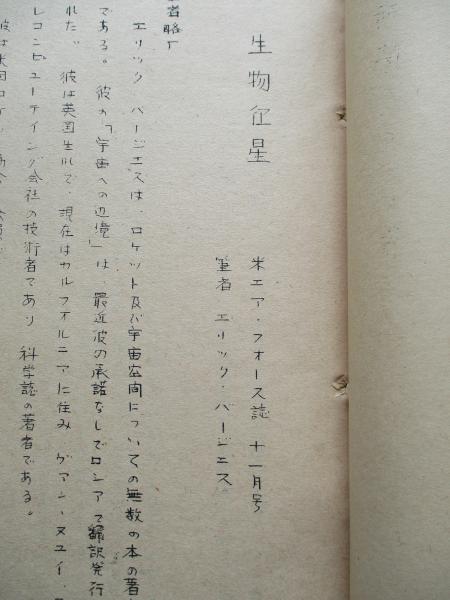 生物衛星
米エア・フォース誌 十一月号
筆者 エリック・バージエス
者略歴
エリック バージエスは、ロケット及び宇宙空間についての無数の本の著
である。 彼の「宇宙への辺境」は、最近彼の承諾なしでロシアで翻訳発行
れた。 彼は英国生れで、現在はカルフォルニアに住み
レコンピューテイング会社の技術者であり 科学誌の著者である。